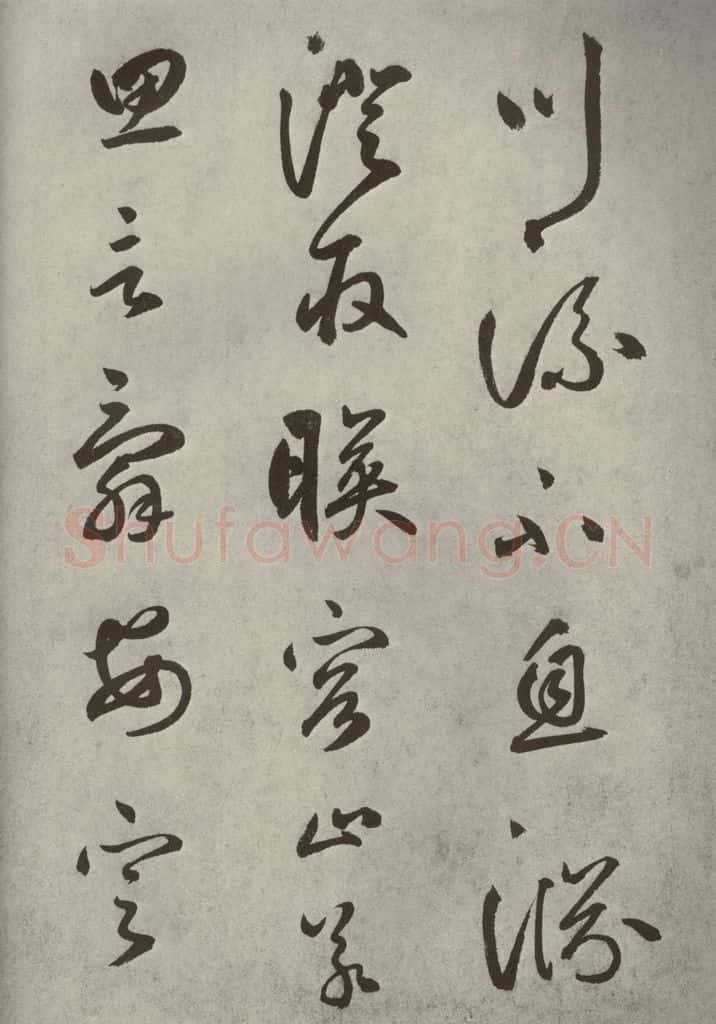 川流不息渊
澄取暎容止若
思言辞安定
Shufawang.CN